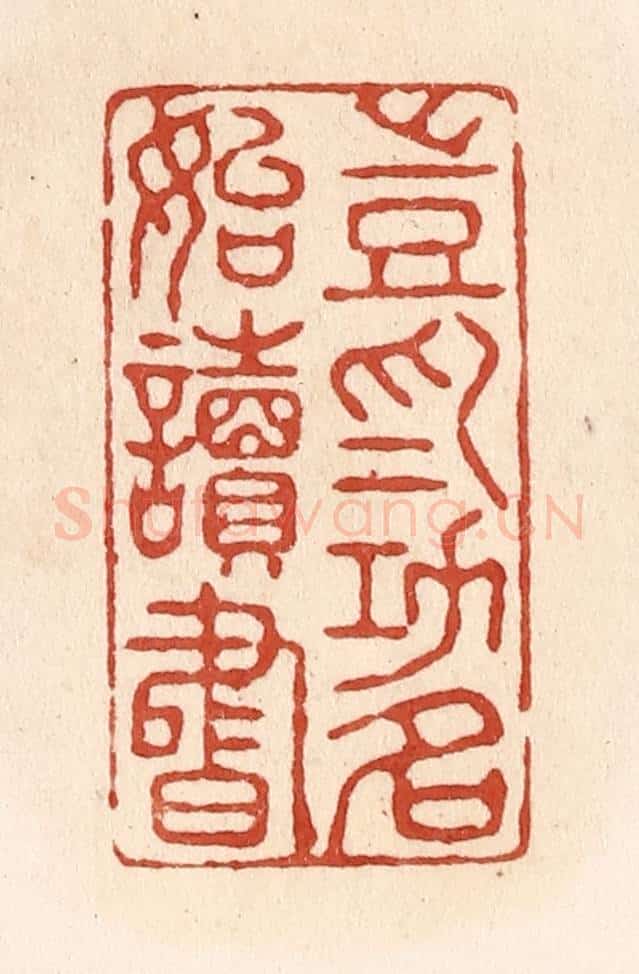 豈為功名
始讀書
Shufawang.CN